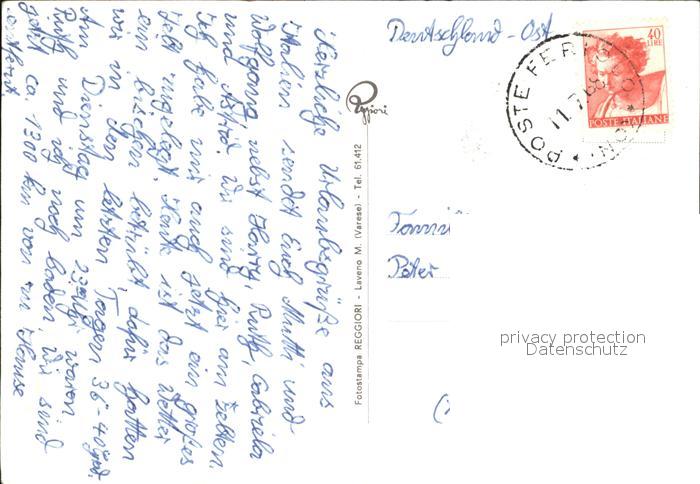 Herzliche Urlaubsgrüße aus
Italien sendet Euch Mutti und
Wolfgang nebst Harry, Ruth, Gabriela
und Astrid. Wir sind hier am Zelten.
Ich habe mir auch jetzt ein großes
Zelt zugelegt. Heute ist das Wetter
ein bischen betrübt dafür hatten
wir in den letzten Tagen 36-40° grd.
Am Dienstag um 23 waren
Ruth und ich noch baden. Wir sind
jetzt ca. 1300 km von zu Hause
entfernt
Reggiori
Fotostampa REGGIORI - Laveno M. (Varese) - Tel. 61.412
Deutschland - Ost
40
LIRE
POSTE ITALIANE
POSTE FER
11.7.68
Fami
Peter
privacy protection
Datenschutz